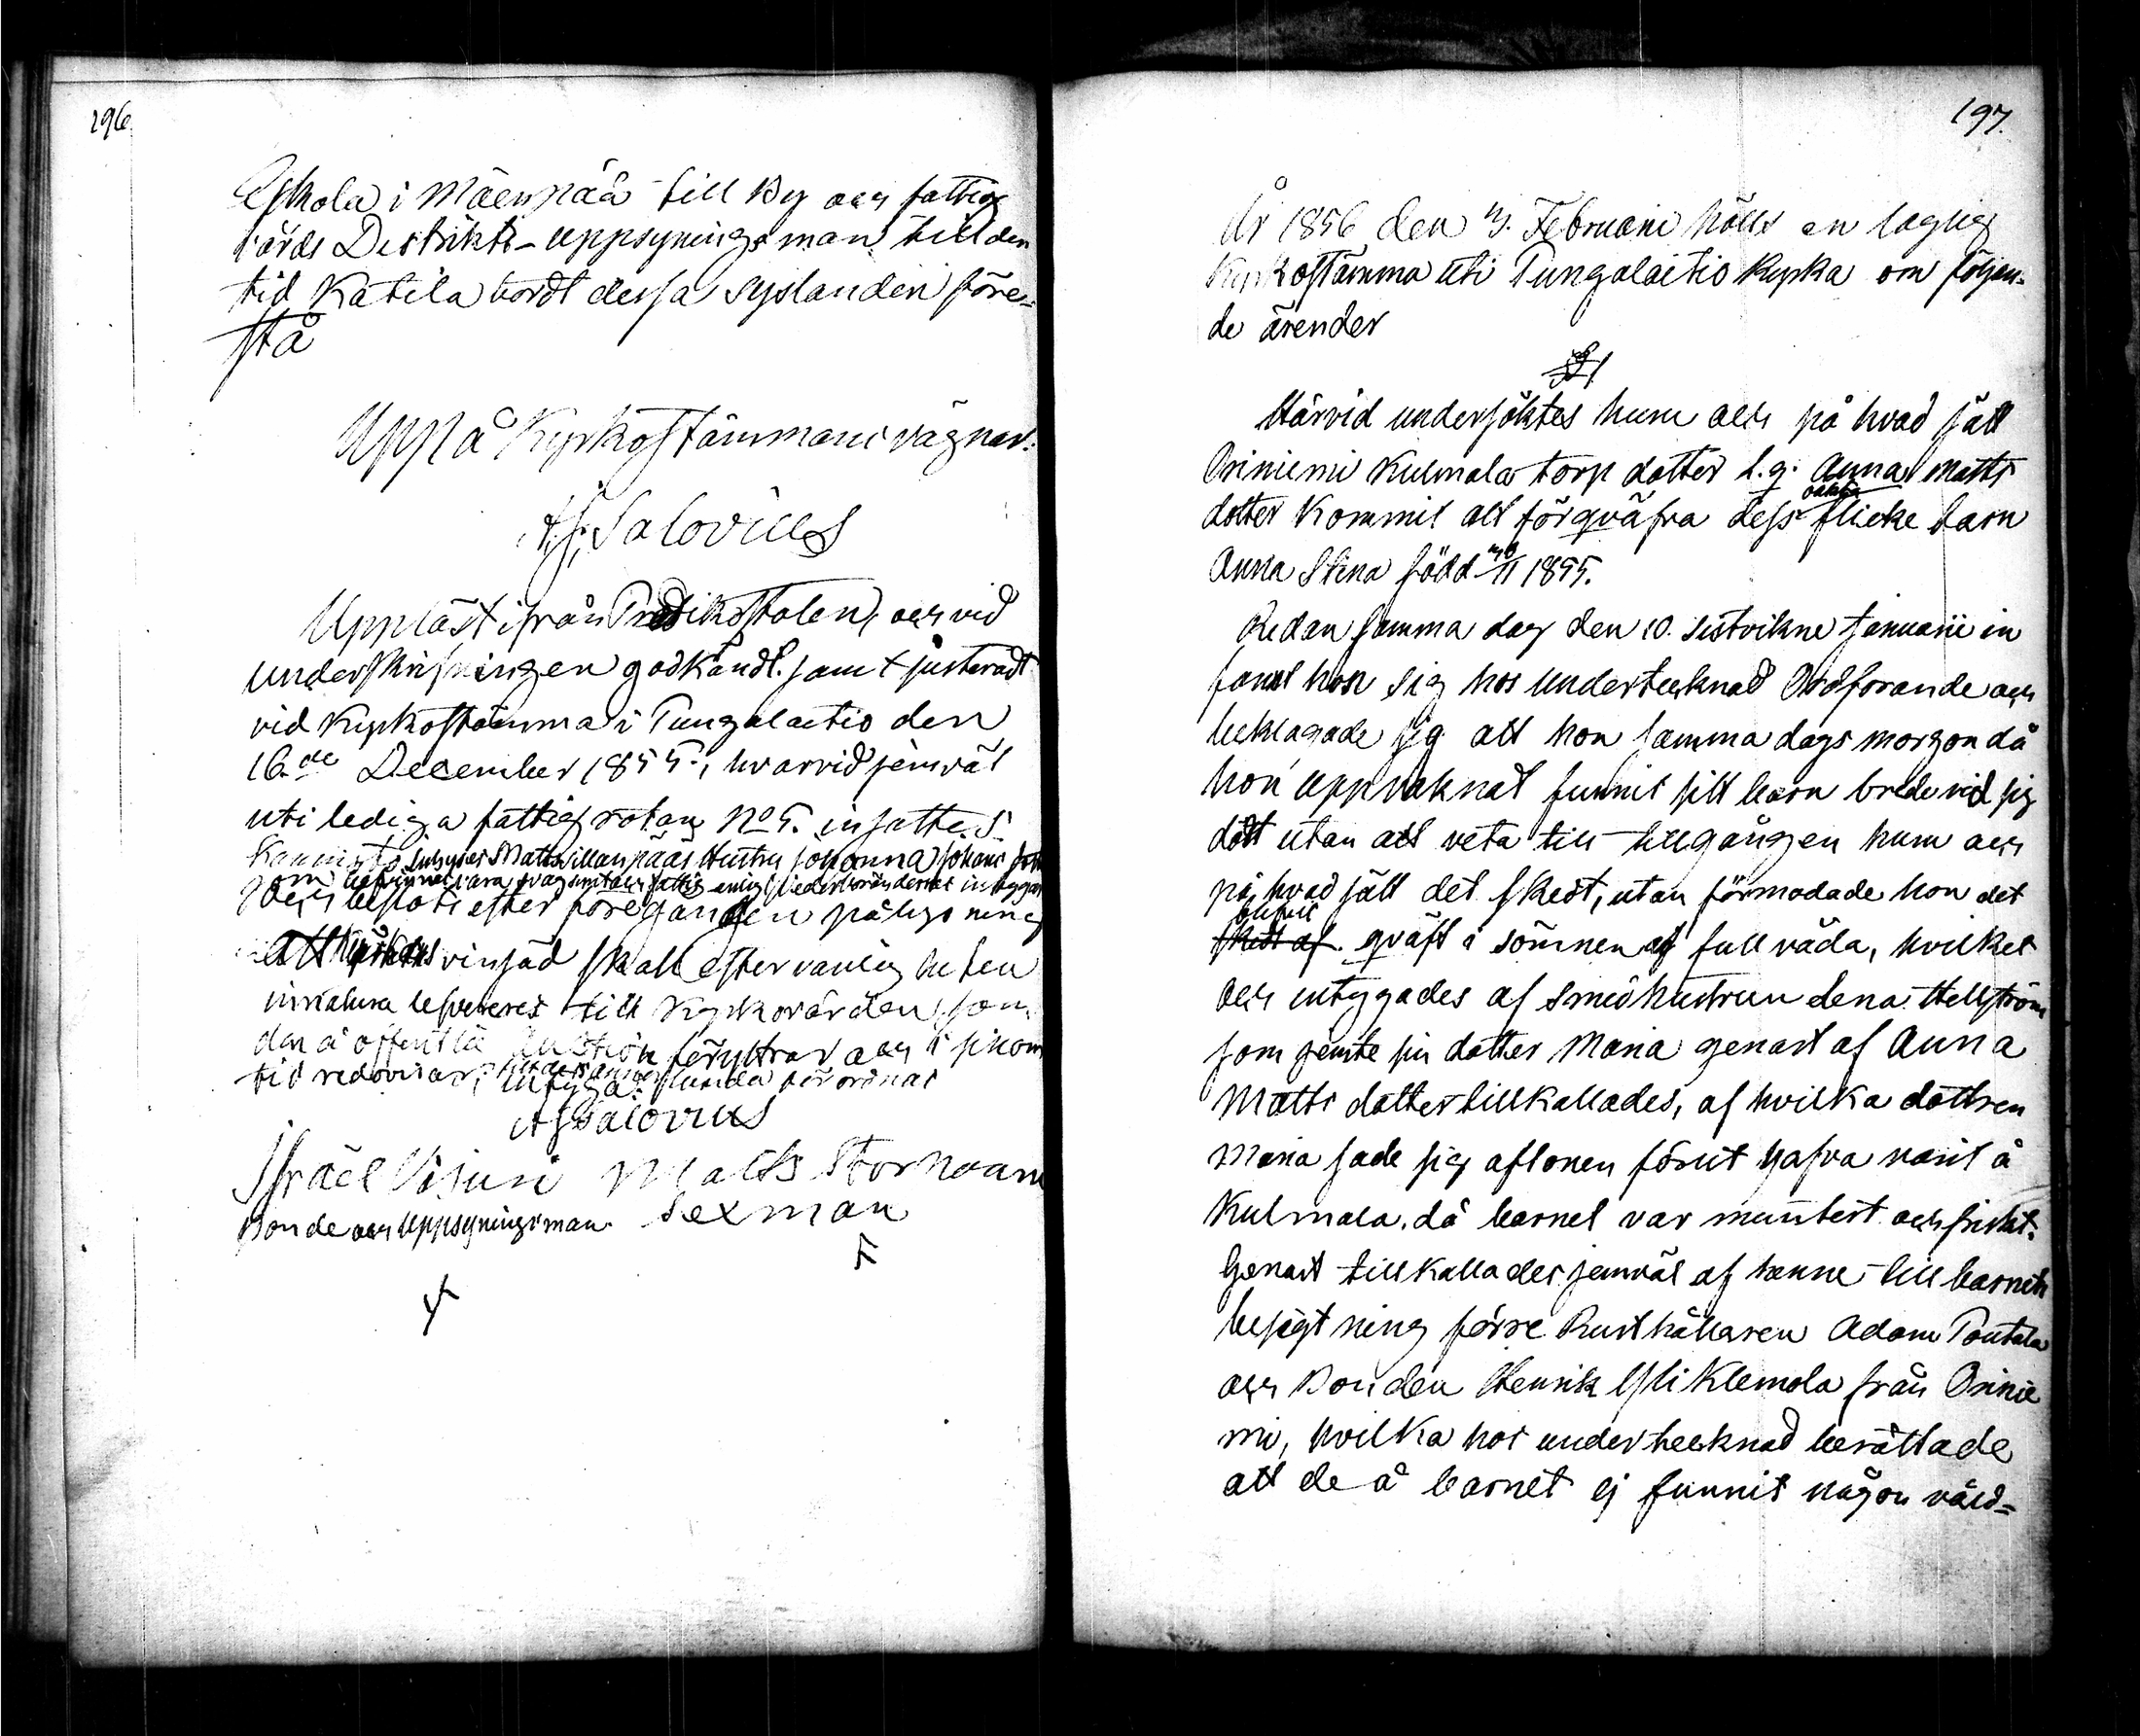 296.
Eskola i Mäenpää till By och fattig
vårds Distrikts-uppsyningsman till den
tid Katila bordt dessa syslanden före-
stå
Uppå Kyrkostämmans vägnar:
A. J. Salovius
Uppläst ifrån Predikstolen, och vid
underskrifningen godkändt samt justeradt
vid Kyrkostämma i Pungalaitio den
16.de December 1855, hvarvid jemväl
uti lediga fattig rotan No 5. insattes
Hustru Johanna Johans
som befinnes vara svagsint och fattig enligt
och beslöts efter föregången pålysning
att vinsäd skall efter vanligheten
lefvereres till Kyrkovärden, som
den å offentlig Auction föryttrar och i sinom
tid redovisar, annorlunda förordnas
intyga:
A J Salovius
Israel Matts Stornoani
Bonde och Uppsyningsman. Sexman
197.
År 1856 den 3. Februarii hölls en laglig
Kyrkostämma uti Pungalaitio Kyrka om följan-
de ärender
§ 1
Härvid undersöktes huru och på hvad sätt
Oriniemi Kulmala torp dotter l. q. Anna Matts
oäkta
dotter kommit att förqväfva dess flicke barn
Anna Stina född 11 1855.
Redan samma dag den 10. sistvikne Januarii in
fant hon sig hos undertecknad Ordförande och
beklagade sig att hon samma dags morgon då
hon uppvaknat funnit sitt barn bredevid sig
dött utan att veta till tillgången huru och
på hvad sätt det skedt, utan förmodade hon det
blifvit
skedt af qväft i sömnen af full våda, hvilket
och intygades af smedhustrun Lena Hellström
som jemte sin dotter Maria genast af Anna
Matts dotter tillkallades, af hvilka dottren
Maria sade sig aftonen förut hafva varit å
Kulmala, då barnet var muntert och friskt.
Genast tillkallades jemväl af henne till barnets
besigtning förre Rusthållaren Adam Pontela
och Bonden Henrik Yli Klemola från Orinie
mi, hvilka hos undertecknad berättade
att de å barnet ej funnit någon våld=